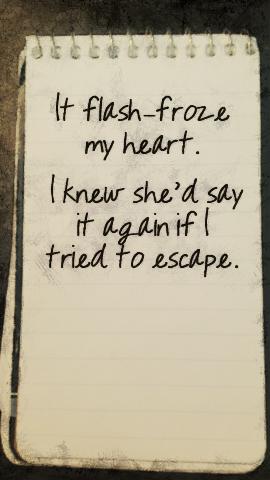 It flash-froze
my heart.
I knew she'd say
it again if I
tried to escape.